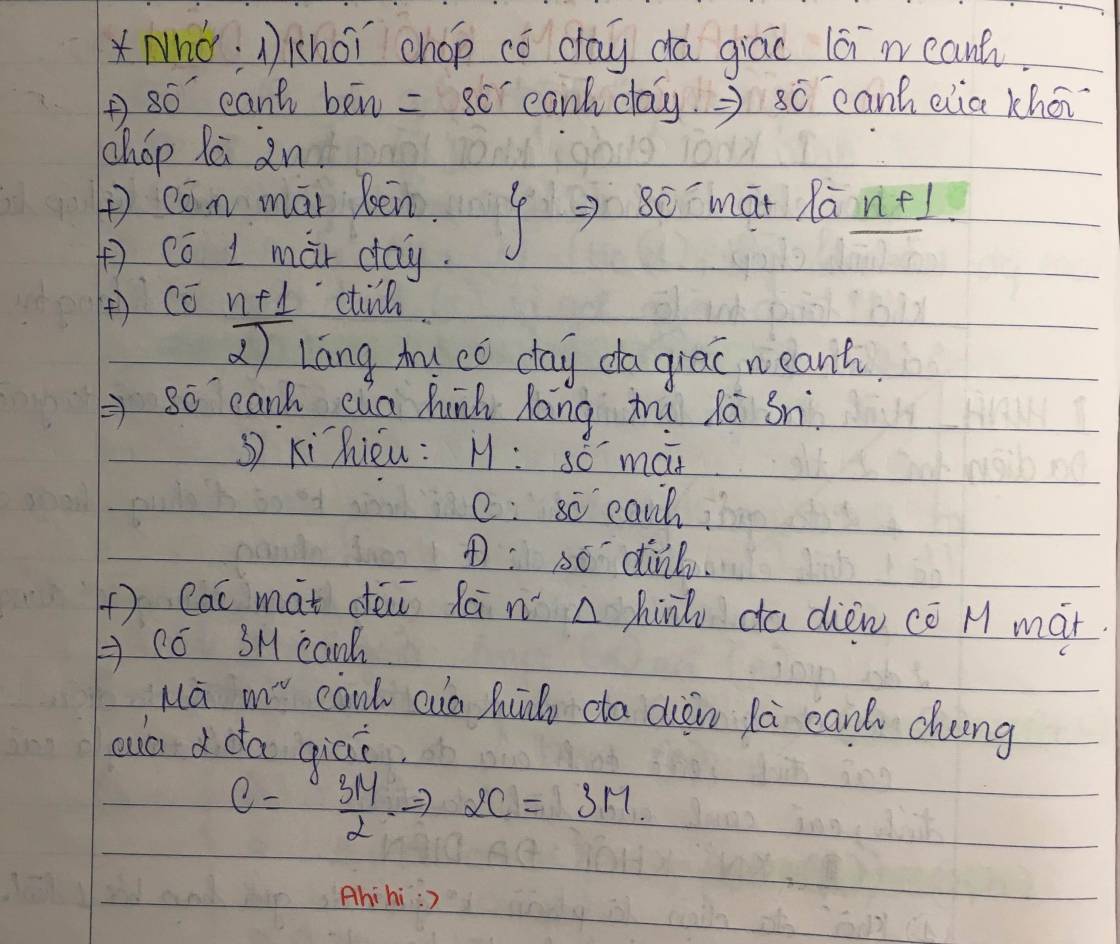 * Nhớ : 1) Khối chóp có đáy đa giác lồi n cạnh.
+) Số cạnh bên = số cạnh đáy. => số cạnh của khối
chóp là 2n.
+) Có n mặt bên. } => số mặt là n+1.
+) Có 1 mặt đáy.
+) Có n+1 đỉnh.
2) Lăng trụ có đáy đa giác n cạnh.
=> số cạnh của hình lăng trụ là 3n.
3) Kí hiệu: M: số mặt
C: số cạnh.
Đ: số đỉnh.
+) Các mặt đều là n~ Δ hình đa diện có M mặt.
=> có 3M cạnh.
Mà m~ cạnh của hình đa diện là cạnh chung
của 2 đa giác.
C = 3M/2 => 2C = 3M.
Ahihi :>